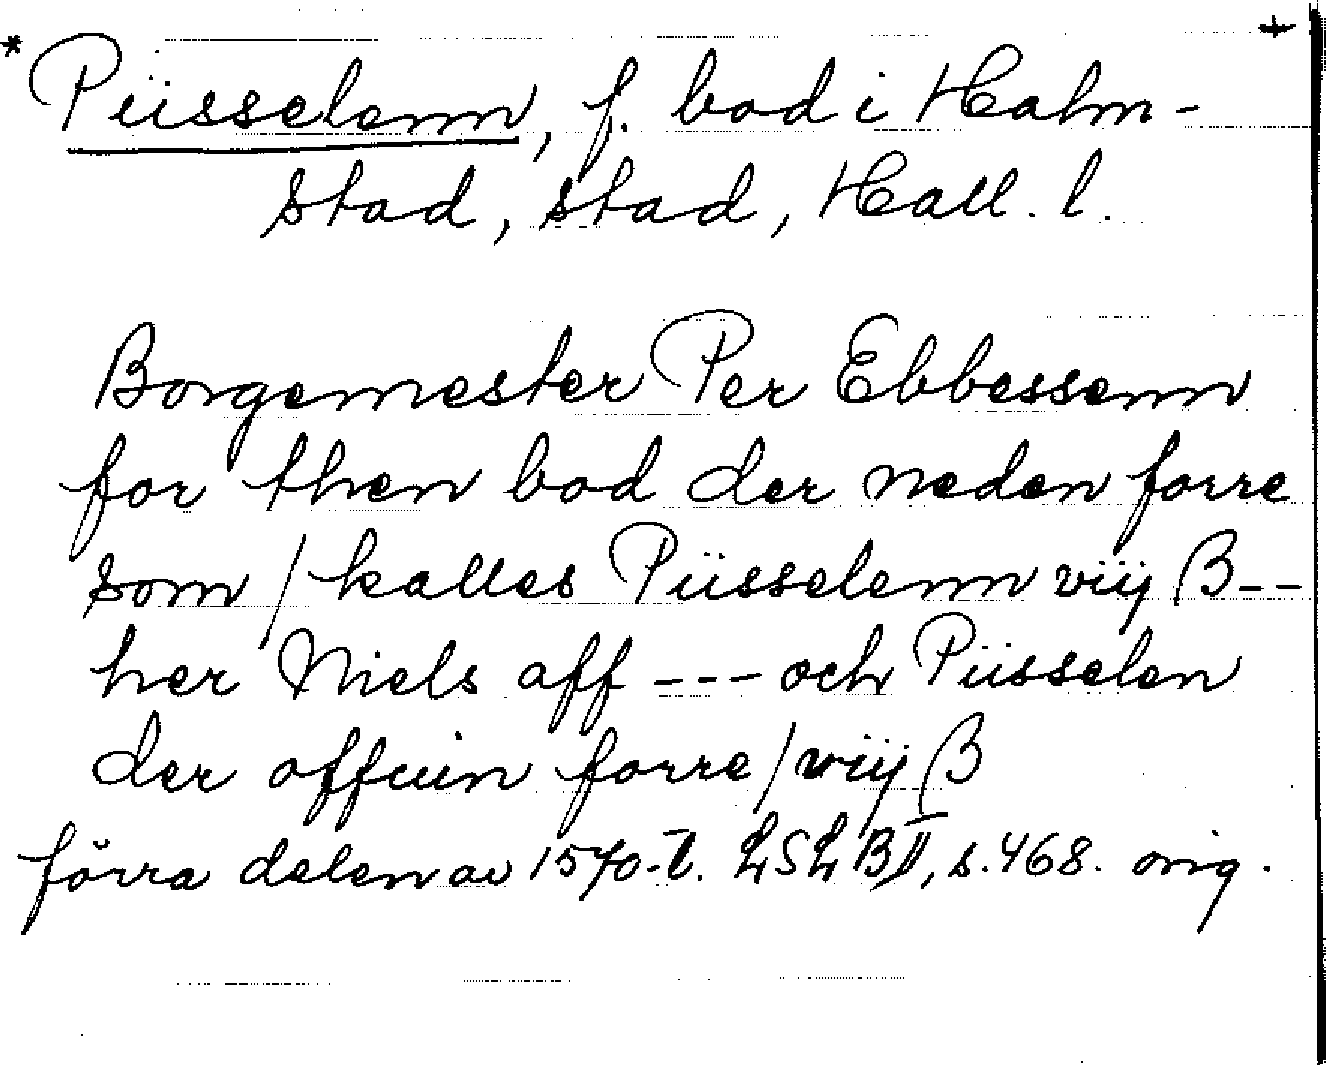 * Püsselenn, f. bod i Halm-
stad, stad, Hall. l.
Borgemester Per Ebbessenn
for then bod der neden forre
som / kalles Püsselenn viij ß--
her Niels aff --- och Püsselen
der offuin forre / viij ß
förra delen av 1570-t. LSLB II, s. 468. orig.